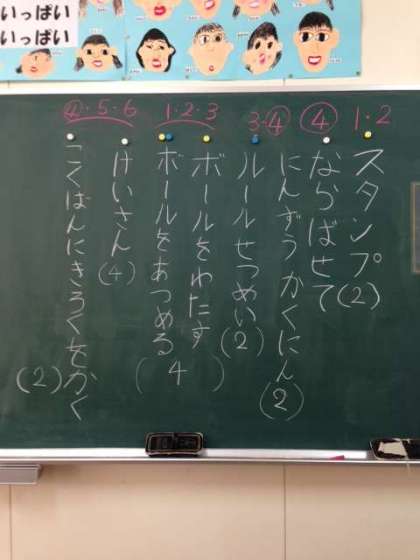 いっぱい
いっぱい
1・2
④
3・④
1・2・3
④・5・6
スタンプ(2)
ならばせて
にんずうかくにん(2)
ルールせつめい(2)
ボールをわたす
ボールをあつめる
(4)
けいさん(4)
こくばんにきろくをかく(2)